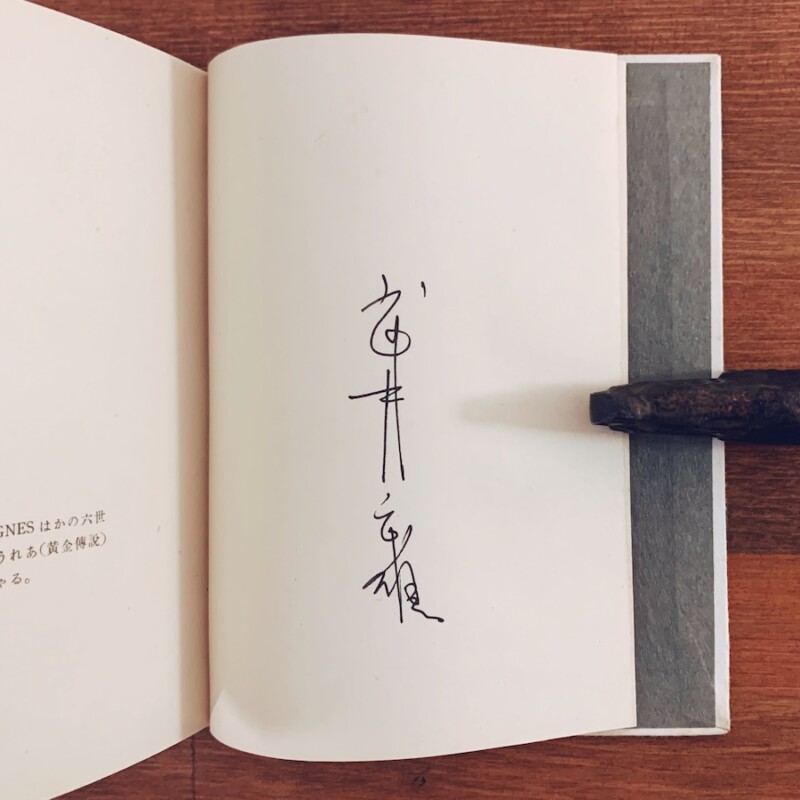 GNES ほかの六世
うれあ(黄金傳説)
ゃる。
武井武雄